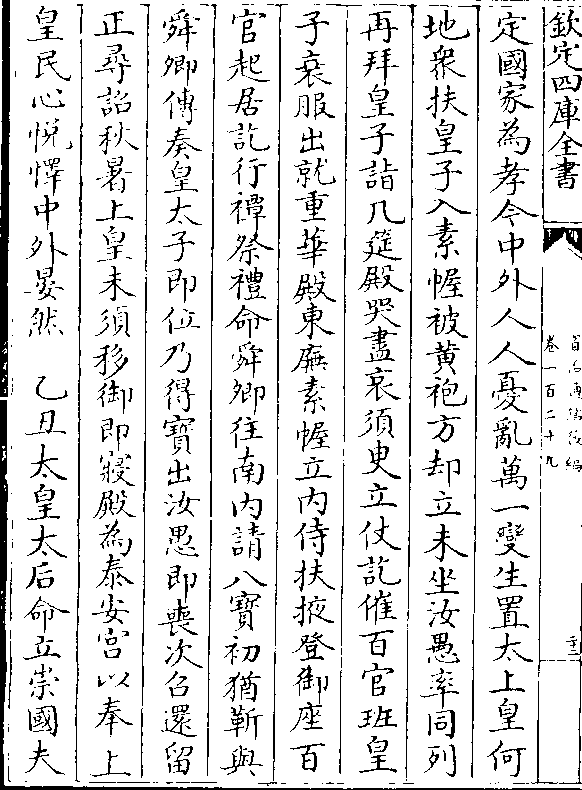 欽定四庫全書
卷一百二十九
定國家為孝今中外人人憂亂萬一變生置太上皇何
地衆扶皇子入素幄被黄袍方却立未坐汝愚率同列
再拜皇子詣几筵殿哭盡哀須臾立仗訖催百官班皇
子衰服出就重華殿東廡素幄立内侍扶掖登御座百
官起居訖行禫祭禮命舜卿往南内請八寶初猶靳與
舜卿傳奏皇太子即位乃得寶出汝愚即喪次召還留
正尋詔秋暑上皇未須移御即寢殿為泰安宫以奉上
皇民心悦懌中外晏然　乙丑太皇太后命立崇國夫